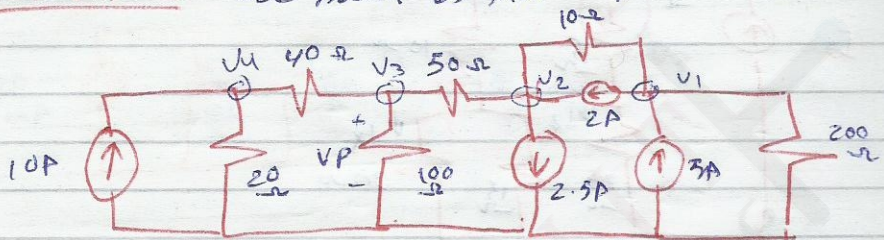 10Ω
V4 40Ω V3 50Ω V2 V1
+ 2A
10A 20Ω VP 100Ω 2.5A 5A 200Ω
-